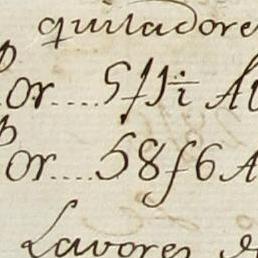 quitadores
Por.... 5f1i Al
Por.... 58f6 A
Lavores de